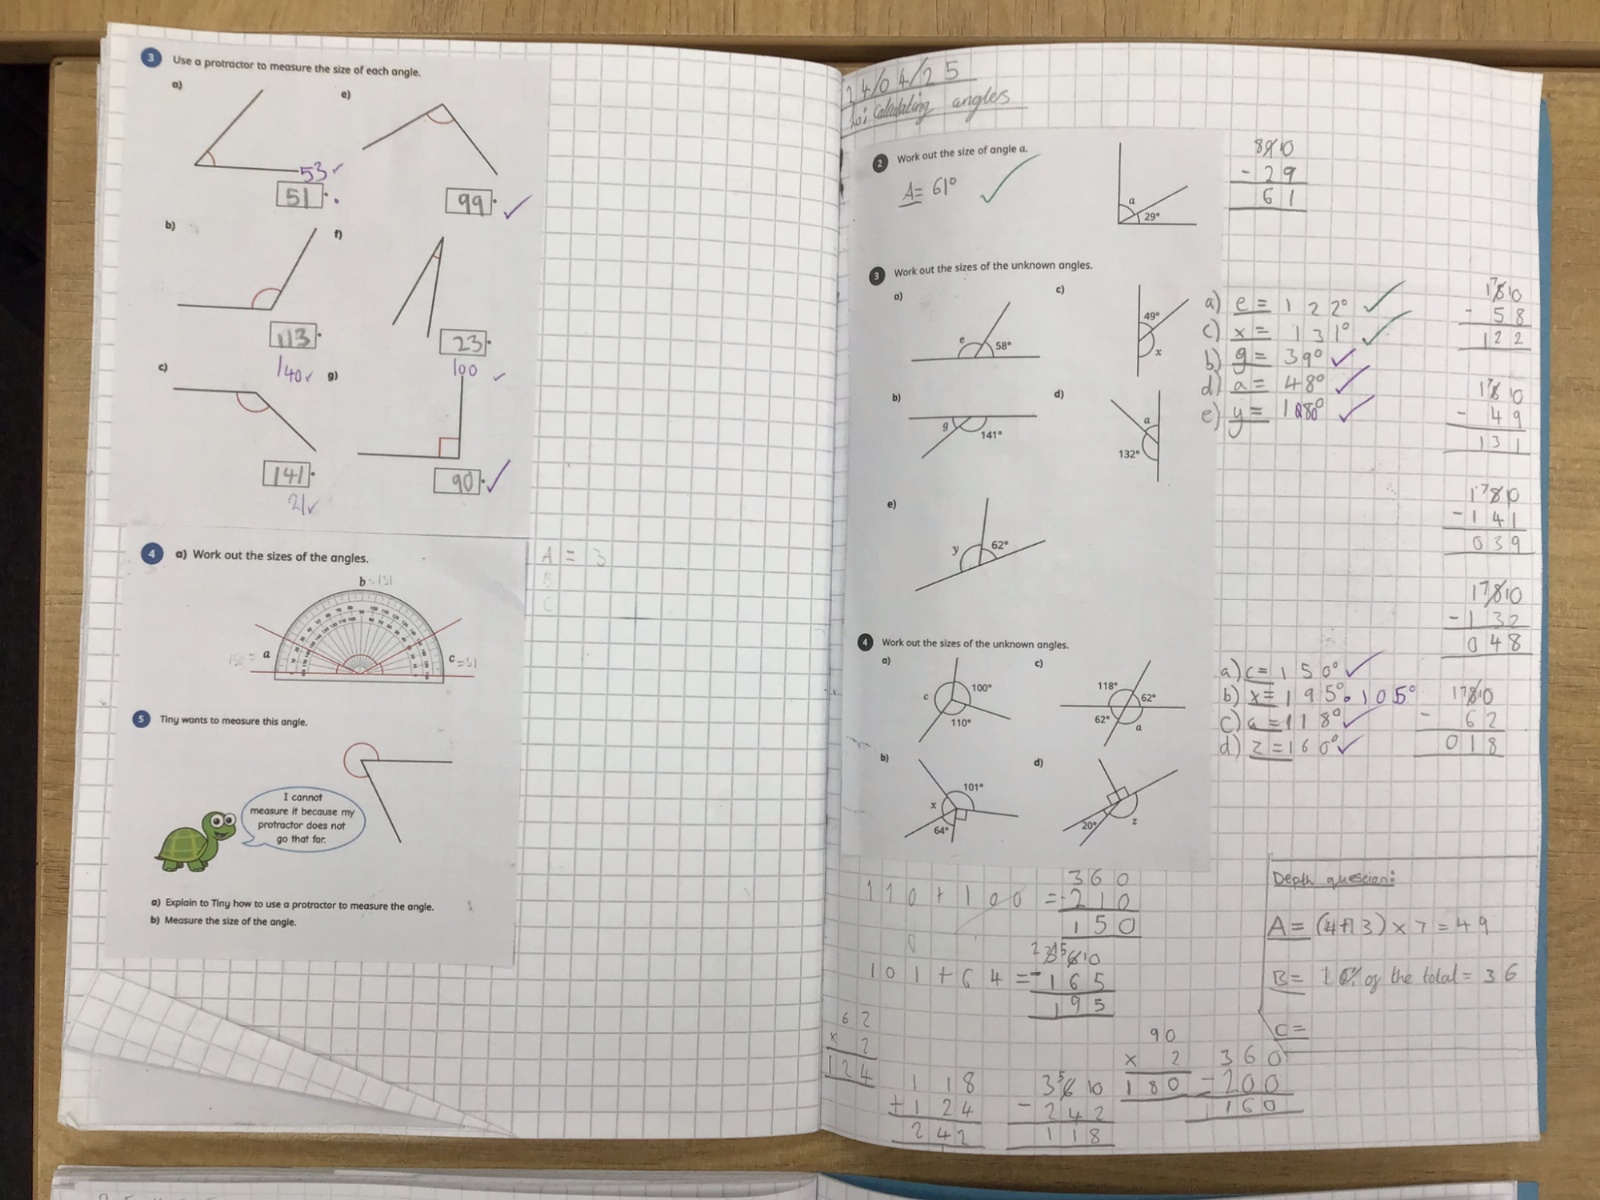 3 Use a protractor to measure the size of each angle.
a)
53 ✓
51
e)
99 ✓
b)
113
f)
23
100 ✓
140 ✓
c)
141
21 ✓
g)
90 ✓
4 a) Work out the sizes of the angles.
b = 131
a
c = 31
A = 3
B
C
5 Tiny wants to measure this angle.
I cannot
measure it because my
protractor does not
go that far.
a) Explain to Tiny how to use a protractor to measure the angle.
b) Measure the size of the angle.
24/04/25
Lo: Calculating angles
2 Work out the size of angle a.
A = 61° ✓
a
29°
8910
- 29
61
3 Work out the sizes of the unknown angles.
a)
e
58°
c)
49°
x
b)
g
141°
d)
a
132°
e)
y
62°
a) e = 122° ✓
c) x = 131° ✓
b) g = 39° ✓
d) a = 48° ✓
e) y = 180° ✓
17810
- 58
122
17810
- 49
131
17810
- 141
039
17810
- 132
048
17810
- 62
018
4 Work out the sizes of the unknown angles.
a)
c
100°
110°
c)
118°
62°
62°
a
b)
101°
x
64°
d)
20°
z
a) c = 150° ✓
b) x = 195° . 105°
c) a = 118° ✓
d) z = 160° ✓
110 + 100 =
360
- 210
150
101 + 64 =
- 165
195
62
x 2
124
118
+ 124
242
35610
- 242
118
90
x 2
180
360
- 200
160
Depth question:
A = (4+3) x 7 = 49
B = 10% of the total = 36
C =